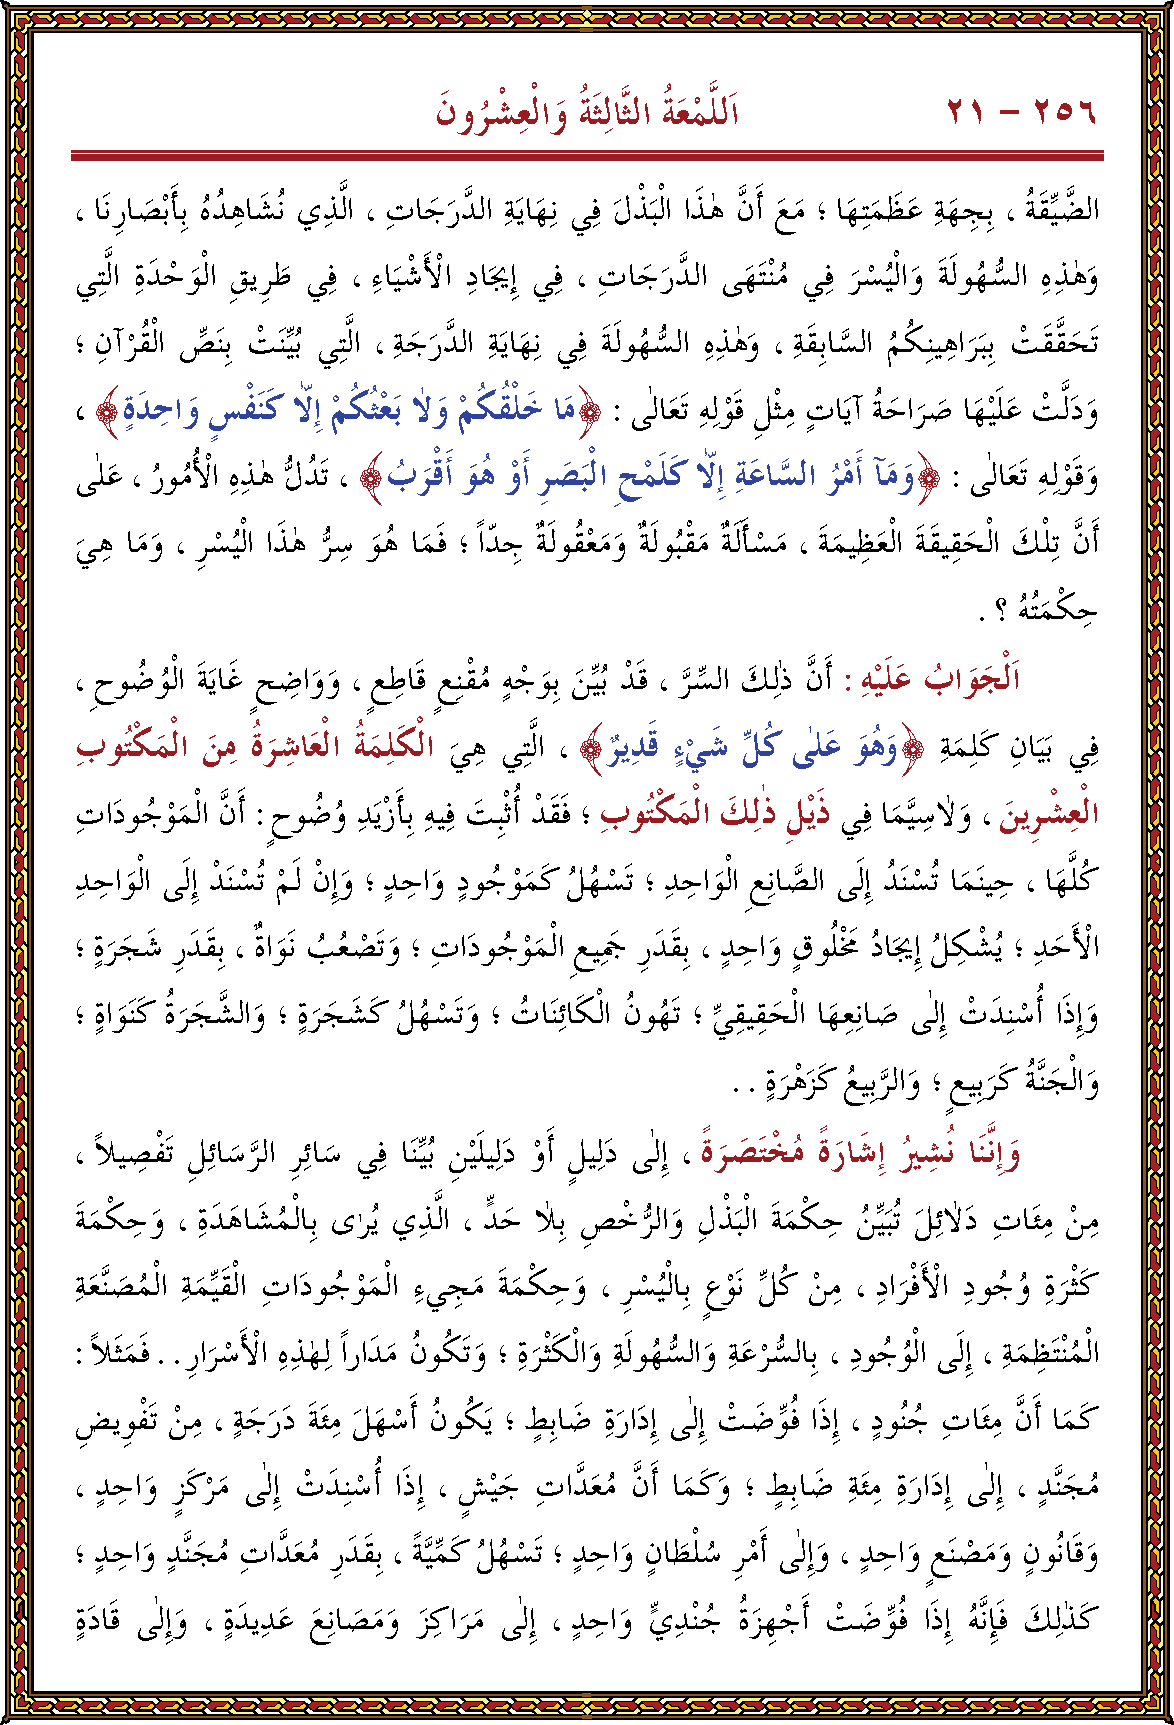 ٢٥٦ - ٢١ اَللَّمْعَةُ الثَّالِثَةُ وَالْعِشْرُونَ
الضَّيِّقَةُ ، بِجِهَةِ عَظَمَتِهَا ؛ مَعَ أَنَّ هٰذَا الْبَذْلَ فِي نِهَايَةِ الدَّرَجَاتِ ، الَّذِي نُشَاهِدُهُ بِأَبْصَارِنَا ،
وَهٰذِهِ السُّهُولَةَ وَالْيُسْرَ فِي مُنْتَهَى الدَّرَجَاتِ ، فِي إِيجَادِ الْأَشْيَاءِ ، فِي طَرِيقِ الْوَحْدَةِ الَّتِي
تَحَقَّقَتْ بِبَرَاهِينِكُمُ السَّابِقَةِ ، وَهٰذِهِ السُّهُولَةَ فِي نِهَايَةِ الدَّرَجَةِ ، الَّتِي بُيِّنَتْ بِنَصِّ الْقُرْآنِ ؛
وَدَلَّتْ عَلَيْهَا صَرَاحَةُ آيَاتٍ مِثْلِ قَوْلِهِ تَعَالٰى : ﴿مَا خَلْقُكُمْ وَلَا بَعْثُكُمْ إِلَّا كَنَفْسٍ وَاحِدَةٍ﴾ ،
وَقَوْلِهِ تَعَالٰى : ﴿وَمَآ أَمْرُ السَّاعَةِ إِلَّا كَلَمْحِ الْبَصَرِ أَوْ هُوَ أَقْرَبُ﴾ ، تَدُلُّ هٰذِهِ الْأُمُورُ ، عَلٰى
أَنَّ تِلْكَ الْحَقِيقَةَ الْعَظِيمَةَ ، مَسْأَلَةٌ مَقْبُولَةٌ وَمَعْقُولَةٌ جِدّاً ؛ فَمَا هُوَ سِرُّ هٰذَا الْيُسْرِ ، وَمَا هِيَ
حِكْمَتُهُ ؟ .
اَلْجَوَابُ عَلَيْهِ : أَنَّ ذٰلِكَ السِّرَّ ، قَدْ بُيِّنَ بِوَجْهٍ مُقْنِعٍ قَاطِعٍ ، وَوَاضِحٍ غَايَةَ الْوُضُوحِ ،
فِي بَيَانِ كَلِمَةِ ﴿وَهُوَ عَلٰى كُلِّ شَيْءٍ قَدِيرٌ﴾ ، الَّتِي هِيَ الْكَلِمَةُ الْعَاشِرَةُ مِنَ الْمَكْتُوبِ
الْعِشْرِينَ ، وَلَاسِيَّمَا فِي ذَيْلِ ذٰلِكَ الْمَكْتُوبِ ؛ فَقَدْ أُثْبِتَ فِيهِ بِأَزْيَدِ وُضُوحٍ : أَنَّ الْمَوْجُودَاتِ
كُلَّهَا ، حِينَمَا تُسْنَدُ إِلَى الصَّانِعِ الْوَاحِدِ ؛ تَسْهُلُ كَمَوْجُودٍ وَاحِدٍ ؛ وَإِنْ لَمْ تُسْنَدْ إِلَى الْوَاحِدِ
الْأَحَدِ ؛ يُشْكِلُ إِيجَادُ مَخْلُوقٍ وَاحِدٍ ، بِقَدَرِ جَمِيعِ الْمَوْجُودَاتِ ؛ وَتَصْعُبُ نَوَاةٌ ، بِقَدَرِ شَجَرَةٍ ؛
وَإِذَا أُسْنِدَتْ إِلٰى صَانِعِهَا الْحَقِيقِيِّ ؛ تَهُونُ الْكَائِنَاتُ ؛ وَتَسْهُلُ كَشَجَرَةٍ ؛ وَالشَّجَرَةُ كَنَوَاةٍ ؛
وَالْجَنَّةُ كَرَبِيعٍ ؛ وَالرَّبِيعُ كَزَهْرَةٍ . .
وَإِنَّنَا نُشِيرُ إِشَارَةً مُخْتَصَرَةً ، إِلٰى دَلِيلٍ أَوْ دَلِيلَيْنِ بُيِّنَا فِي سَائِرِ الرَّسَائِلِ تَفْصِيلاً ،
مِنْ مِئَاتِ دَلَائِلَ تُبَيِّنُ حِكْمَةَ الْبَذْلِ وَالرُّخْصِ بِلَا حَدٍّ ، الَّذِي يُرٰى بِالْمُشَاهَدَةِ ، وَحِكْمَةَ
كَثْرَةِ وُجُودِ الْأَفْرَادِ ، مِنْ كُلِّ نَوْعٍ بِالْيُسْرِ ، وَحِكْمَةَ مَجِيءِ الْمَوْجُودَاتِ الْقَيِّمَةِ الْمُصَنَّعَةِ
الْمُنْتَظِمَةِ ، إِلَى الْوُجُودِ ، بِالسُّرْعَةِ وَالسُّهُولَةِ وَالْكَثْرَةِ ؛ وَتَكُونُ مَدَاراً لِهٰذِهِ الْأَسْرَارِ . . فَمَثَلاً :
كَمَا أَنَّ مِئَاتِ جُنُودٍ ، إِذَا فُوِّضَتْ إِلٰى إِدَارَةِ ضَابِطٍ ؛ يَكُونُ أَسْهَلَ مِئَةَ دَرَجَةٍ ، مِنْ تَفْوِيضِ
مُجَنَّدٍ ، إِلٰى إِدَارَةِ مِئَةِ ضَابِطٍ ؛ وَكَمَا أَنَّ مُعَدَّاتِ جَيْشٍ ، إِذَا أُسْنِدَتْ إِلٰى مَرْكَزٍ وَاحِدٍ ،
وَقَانُونٍ وَمَصْنَعٍ وَاحِدٍ ، وَإِلٰى أَمْرِ سُلْطَانٍ وَاحِدٍ ؛ تَسْهُلُ كَمِّيَّةً ، بِقَدَرِ مُعَدَّاتِ مُجَنَّدٍ وَاحِدٍ ؛
كَذٰلِكَ فَإِنَّهُ إِذَا فُوِّضَتْ أَجْهِزَةُ جُنْدِيٍّ وَاحِدٍ ، إِلٰى مَرَاكِزَ وَمَصَانِعَ عَدِيدَةٍ ، وَإِلٰى قَادَةٍ